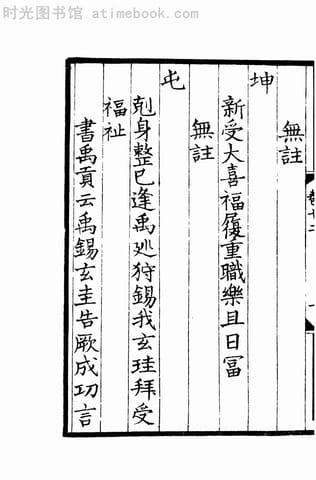 时光图书馆 atimebook.com
無註
坤
新受大喜福履重職樂且日富
無註
屯
剋身整己逢禹巡狩錫我玄珪拜受
福祉
書禹貢云禹錫玄圭告厥成功言